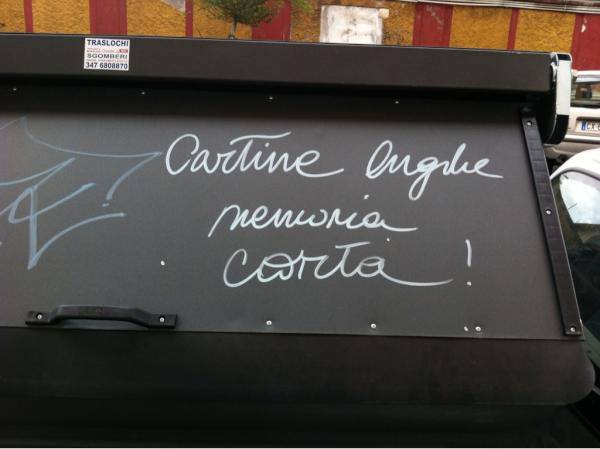 TRASLOCHI
SGOMBERI
347 6808870
Cartine lunghe
memoria
corta!